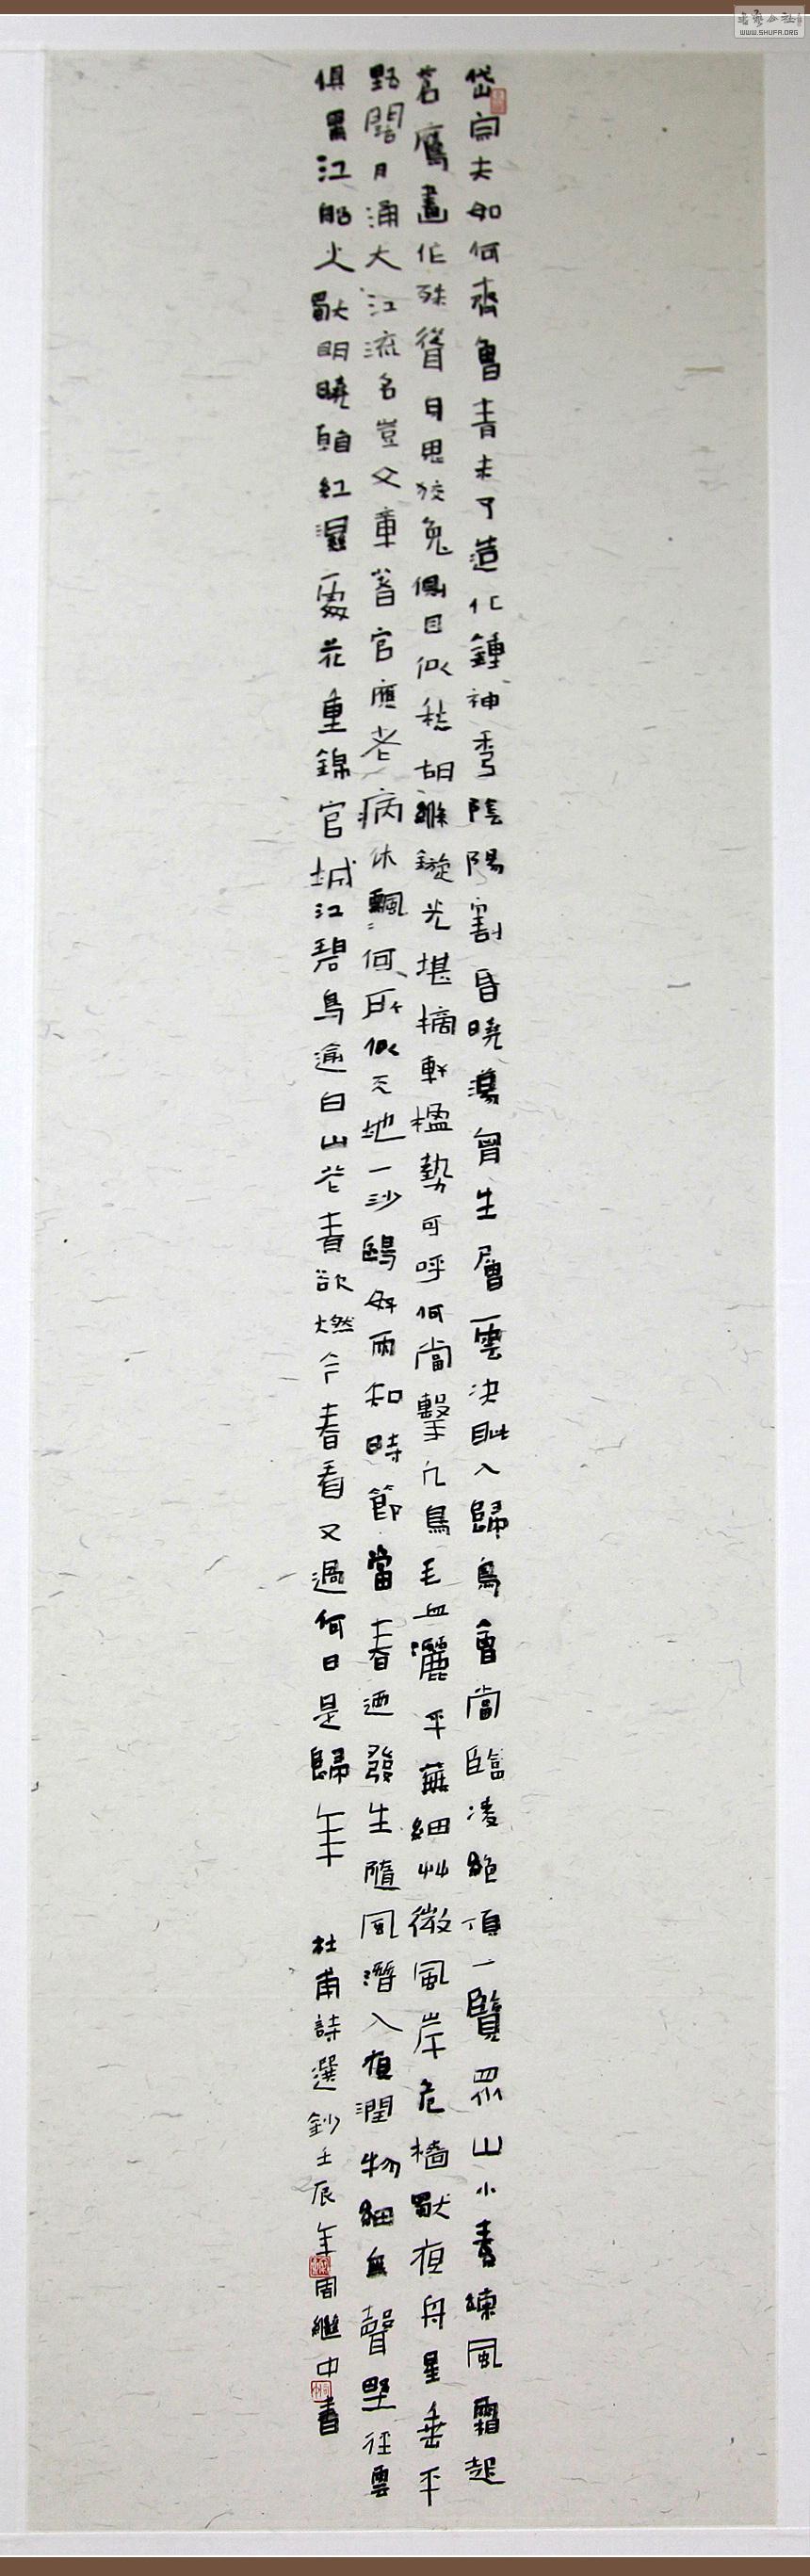 岱宗夫如何齊魯青未了造化鍾神秀陰陽割昏曉蕩胷生層雲決眦入歸鳥會當臨凌絕頂一覽眾山小素練風霜起
蒼鷹畫作殊聳身思狡兔側目似愁胡絛鏇光堪摘軒楹勢可呼何當擊凡鳥毛血灑平蕪細艸微風岸危檣獨夜舟星垂平
野闊月涌大江流名豈文章著官應老病休飄〻何所似天地一沙鷗好雨知時節當春迺發生隨風潛入夜潤物細無聲野徑雲
俱黑江船火獨明曉看紅濕處花重錦官城江碧鳥逾白山花青欲燃今春看又過何日是歸年
杜甫詩選鈔壬辰年周繼中書
WWW.SHUFA.ORG